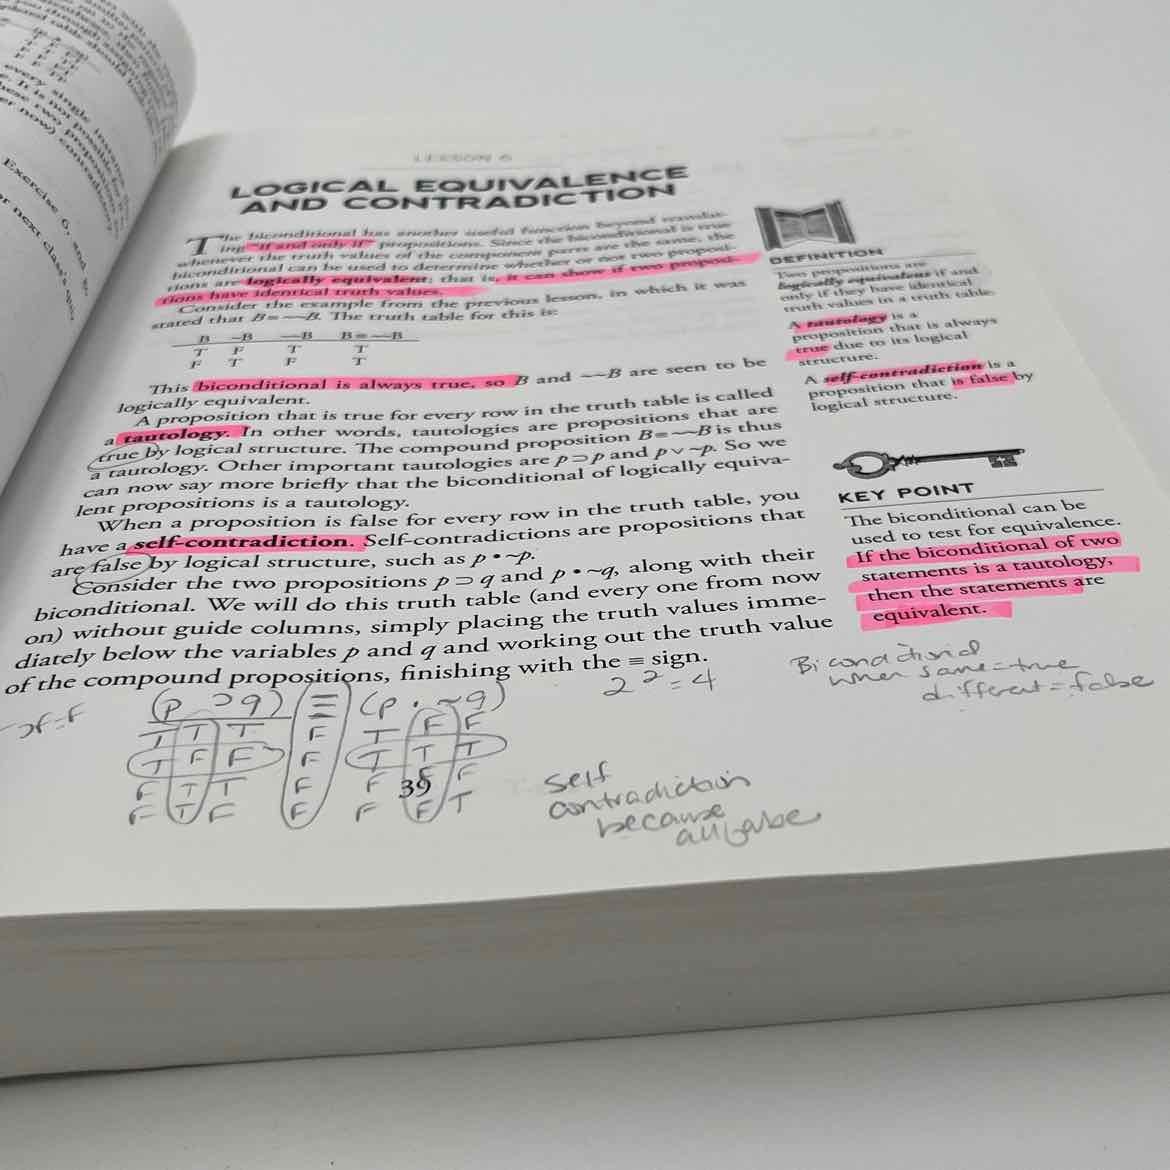 LESSON 6
LOGICAL EQUIVALENCE
AND CONTRADICTION
The biconditional has another useful function beyond translat-
ing "if and only if" propositions. Since the biconditional is true
whenever the truth values of the component parts are the same, the
biconditional can be used to determine whether or not two proposi-
tions are logically equivalent; that is, it can show if two proposi-
tions have identical truth values.
Consider the example from the previous lesson, in which it was
stated that B≡~~B. The truth table for this is:
B ~B ~~B B≡~~B
T F T T
F T F T
This biconditional is always true, so B and ~~B are seen to be
logically equivalent.
A proposition that is true for every row in the truth table is called
a tautology. In other words, tautologies are propositions that are
true by logical structure. The compound proposition B≡~~B is thus
a tautology. Other important tautologies are p⊃p and p∨~p. So we
can now say more briefly that the biconditional of logically equiva-
lent propositions is a tautology.
When a proposition is false for every row in the truth table, you
have a self-contradiction. Self-contradictions are propositions that
are false by logical structure, such as p•~p.
Consider the two propositions p⊃q and p•~q, along with their
biconditional. We will do this truth table (and every one from now
on) without guide columns, simply placing the truth values imme-
diately below the variables p and q and working out the truth value
of the compound propositions, finishing with the ≡ sign.
(p ⊃ q) ≡ (p · ~q)
T T T F T F F
T F F F T T T
F T T F F F F
F T F F F F T
39
2²=4
self
contradiction
because
all false
DEFINITION
Two propositions are
logically equivalent if and
only if they have identical
truth values in a truth table.
A tautology is a
proposition that is always
true due to its logical
structure.
A self-contradiction is a
proposition that is false by
logical structure.
KEY POINT
The biconditional can be
used to test for equivalence.
If the biconditional of two
statements is a tautology,
then the statements are
equivalent.
Biconditional
when same=true
different=false
every single
It is not possible
these two propositions
now) contradictory
Exercise 6, and
next class's quiz